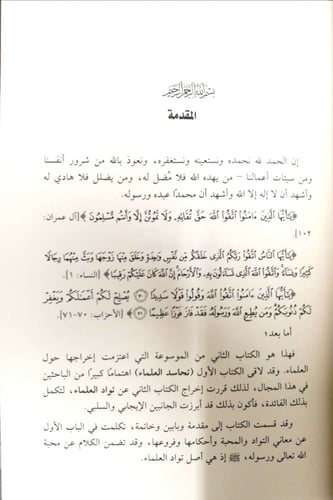 بسم الله الرحمن الرحيم
المقدمة
إن الحمد لله نحمده ونستعينه ونستغفره، ونعوذ بالله من شرور أنفسنا
ومن سيئات أعمالنا - من يهده الله فلا مُضل له، ومن يضلل فلا هادي له
وأشهد أن لا إله إلا الله وأشهد أن محمدًا عبده ورسوله.
﴿يَٰٓأَيُّهَا ٱلَّذِينَ ءَامَنُوا۟ ٱتَّقُوا۟ ٱللَّهَ حَقَّ تُقَاتِهِۦ وَلَا تَمُوتُنَّ إِلَّا وَأَنتُم مُّسْلِمُونَ﴾ [آل عمران:
١٠٢]
﴿يَٰٓأَيُّهَا ٱلنَّاسُ ٱتَّقُوا۟ رَبَّكُمُ ٱلَّذِى خَلَقَكُم مِّن نَّفْسٍ وَٰحِدَةٍ وَخَلَقَ مِنْهَا زَوْجَهَا وَبَثَّ مِنْهُمَا رِجَالًا
كَثِيرًا وَنِسَآءً وَٱتَّقُوا۟ ٱللَّهَ ٱلَّذِى تَسَآءَلُونَ بِهِۦ وَٱلْأَرْحَامَ إِنَّ ٱللَّهَ كَانَ عَلَيْكُمْ رَقِيبًا﴾ [النساء: ١].
﴿يَٰٓأَيُّهَا ٱلَّذِينَ ءَامَنُوا۟ ٱتَّقُوا۟ ٱللَّهَ وَقُولُوا۟ قَوْلًا سَدِيدًا ۝٧٠ يُصْلِحْ لَكُمْ أَعْمَٰلَكُمْ وَيَغْفِرْ
لَكُمْ ذُنُوبَكُمْ وَمَن يُطِعِ ٱللَّهَ وَرَسُولَهُۥ فَقَدْ فَازَ فَوْزًا عَظِيمًا ۝٧١﴾ [الأحزاب: ٧٠-٧١].
أما بعد؛
فهذا هو الكتاب الثاني من الموسوعة التي اعتزمت إخراجها حول
العلماء. وقد لاقى الكتاب الأول (تحاسد العلماء) اهتمامًا كبيرًا من الباحثين
في هذا المجال، لذلك قررت إخراج الكتاب الثاني عن تواد العلماء، لتكمل
بذلك الفائدة، فأكون بذلك قد أبرزت الجانبين الإيجابي والسلبي.
وقد قسمت الكتاب إلى مقدمة وبابين وخاتمة، تكلمت في الباب الأول
عن معاني التواد والمحبة وأحكامها وفروعها، وقد تضمن الكلام عن محبة
الله تعالى ورسوله، ﷺ إذ هي أصل تواد العلماء.